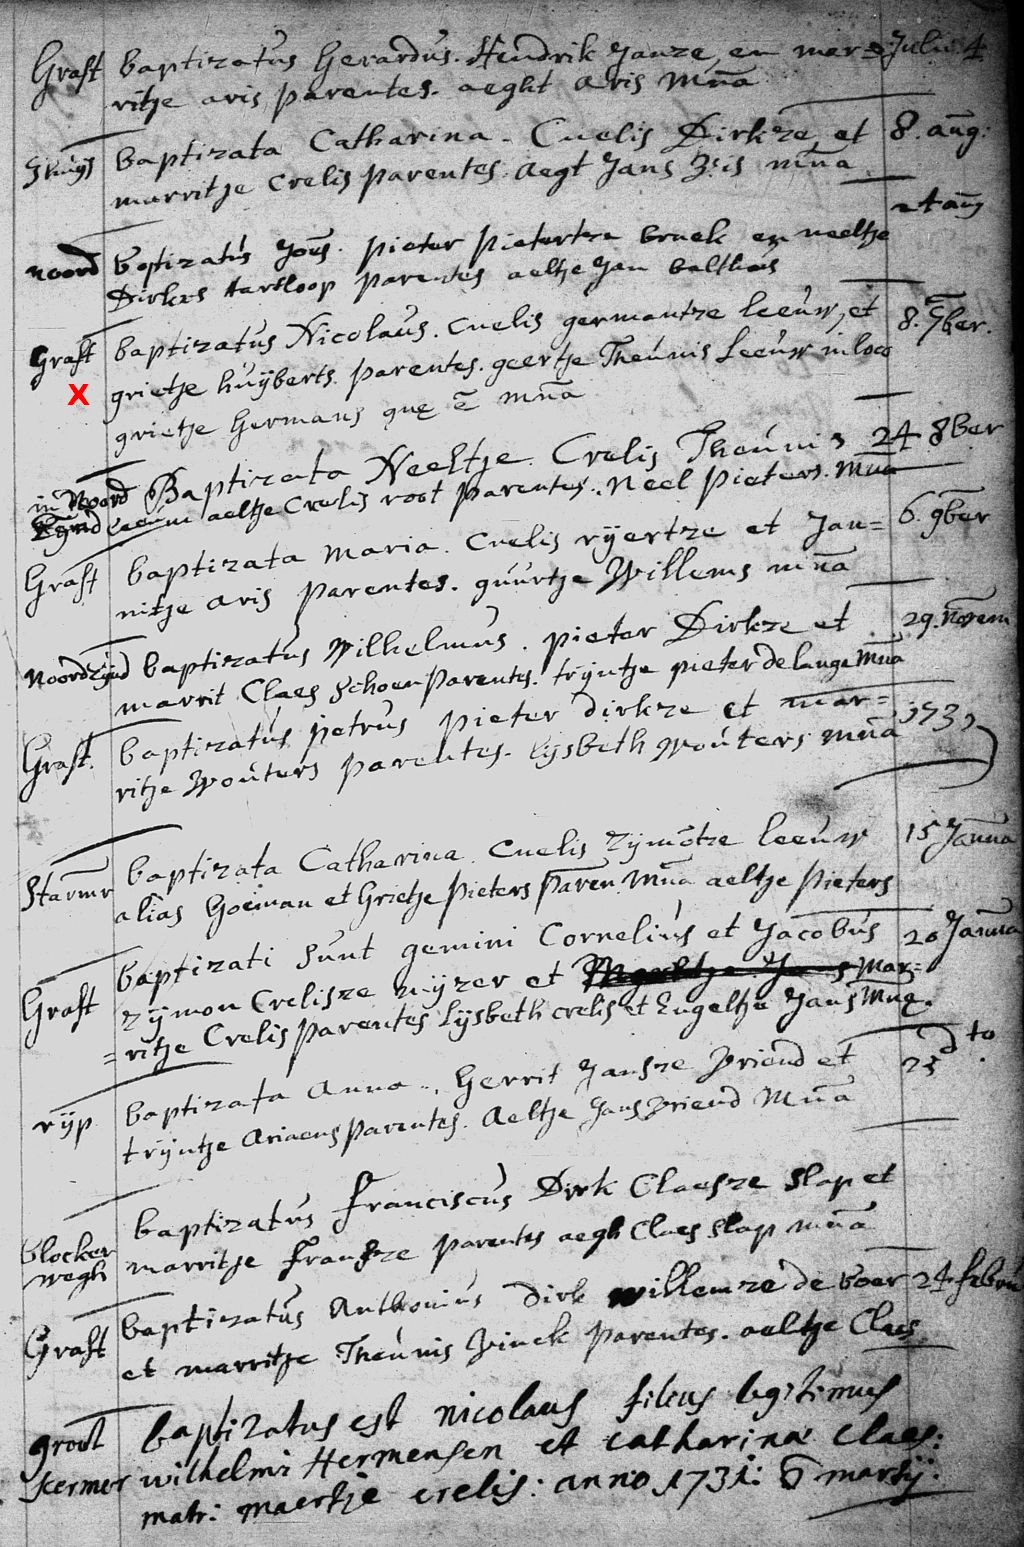 Graft baptizatus Gerardus. Hendrik Janze en mar= Julii 4
ritje aris parentes. aeght Aris mña
baptizata Catharina. Cnelis Dirkze et 8. aug:
marritje Crelis parentes. Aegt Jans mña
24 aug
noord baptizatus Joës. pieter pieterтze broek en neeltje
Dirkes Hartloop parentes aeltje Jan balthaïs
Graft baptizatus Nicolaus. Cnelis germantze leeuw, et 8. 7ber.
X grietje huijberts. parentes. geertje Theunis Leeuw in loco
grietje Germans que ē mña
in Noord Baptizata Neeltje. Crelis Theunis 24 8ber
Eijnd Leeuw aeltje Crelis root parentes. Neel pieters. mña
Graft baptizata maria. Cnelis rijertze et Jan= 6. 9ber
nitje aris parentes. guurtje Willems mña
noordeijnd baptizatus Wilhelmus. pieter Dirkze et 29. novem
marrit Claes Schoen parentes. trijntje pieter de lange mña
Graft. baptizatus petrus pieter dirkze et mar= 1731
ritje Wouters parentes. Lijsbeth Wouters mña
Starmr baptizata Catharina. Cnelis Zijmōtze leeuw 15 Janua
alias Goeman et Grietje Pieters paren. mña aeltje Pieters
Graft baptizati sunt gemini Cornelius et Jacobus 20 Janua
Zijmon Crelisze et Mar=
=ritje Crelis parentes Lijsbeth crelis et Engeltje Jans mñe.
rijp baptizata Anna. Gerrit Jansze Vriend et 23 dto.
trijntje Ariaens parentes. Aeltje Jans Vriend mña
baptizatus Franciscus Dirk Claesze Slap et
blocker wegh marritje Fransze parentes aegh Claes Slap mña
Graft baptizatus Anthonius dirk willemze de boer 24. febru
et marritje Theunis Vinck parentes. aeltje Claes
groot baptizatus est nicolaus filius legitimus
scermer wilhelmi Hermensen et catharina Claes:
matr: maertje crelis: anno 1731: 6 martij.